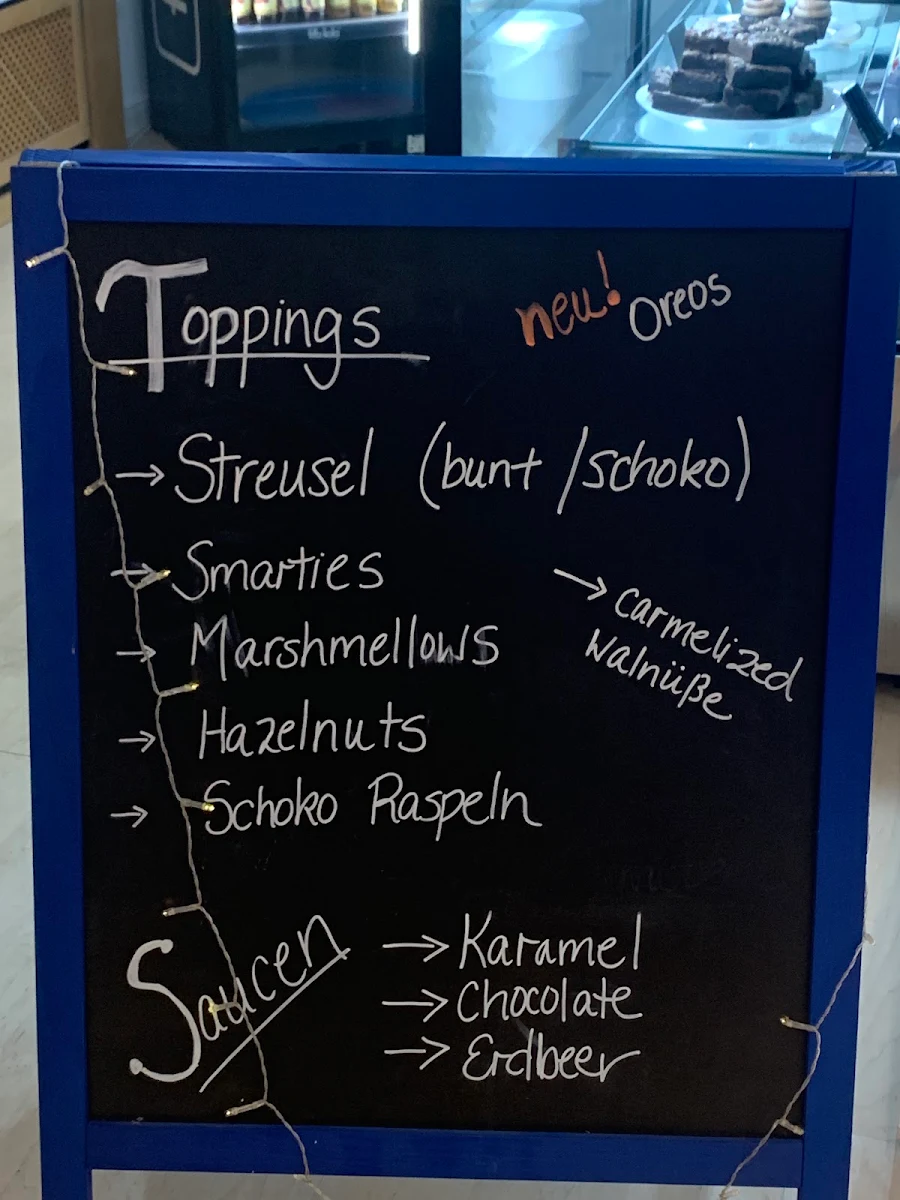 Toppings
neu! Oreos
→ Streusel (bunt / schoko)
→ Smarties
→ carmelized
Walnüße
→ Marshmellows
→ Hazelnuts
→ Schoko Raspeln
Saucen
→ Karamel
→ Chocolate
→ Erdbeer